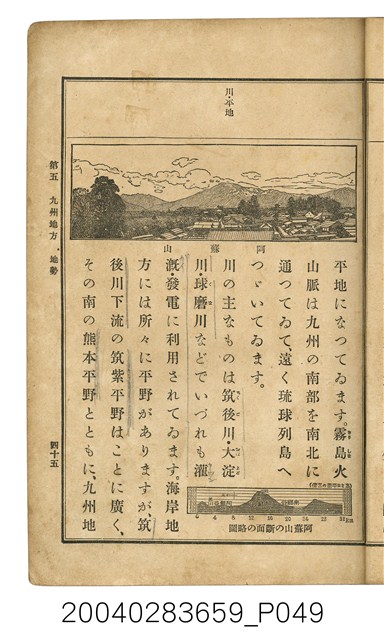 川・平地
山蘇阿
平地になつてゐます。霧島火
山脈は九州の南部を南北に
通つてゐて、遠く琉球列島へ
つゞいてゐます。
川の主なものは筑後川・大淀
川・球磨川などでいづれも灌
漑・發電に利用されてゐます。海岸地
方には所々に平野がありますが、筑
後川下流の筑紫平野はことに廣く、
その南の熊本平野とともに、九州地
圖略の面斷の山蘇阿
0 4 8 12 16 20 24 28 32km
第五 九州地方・地勢
四十五
20040283659_P049